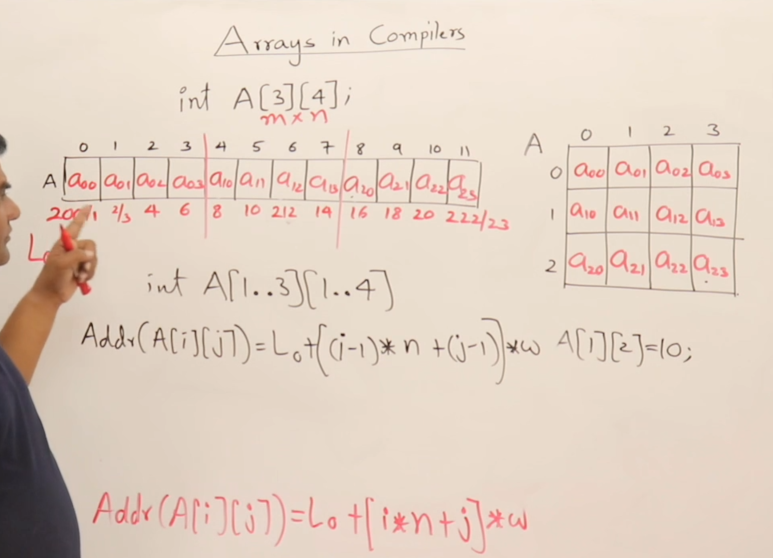 Arrays in Compilers
int A[3][4];
m×n
0 1 2 3 4 5 6 7 8 9 10 11
A a00 a01 a02 a03 a10 a11 a12 a13 a20 a21 a22 a23
2/3 4 6 8 10 212 14 16 18 20 222/23
A
0 1 2 3
0 a00 a01 a02 a03
1 a10 a11 a12 a13
2 a20 a21 a22 a23
int A[1..3][1..4]
Addr(A[i][j])=L0+[(i-1)*n+(j-1)]*w
A[1][2]=10;
Addr(A[i][j])=L0+[i*n+j]*w